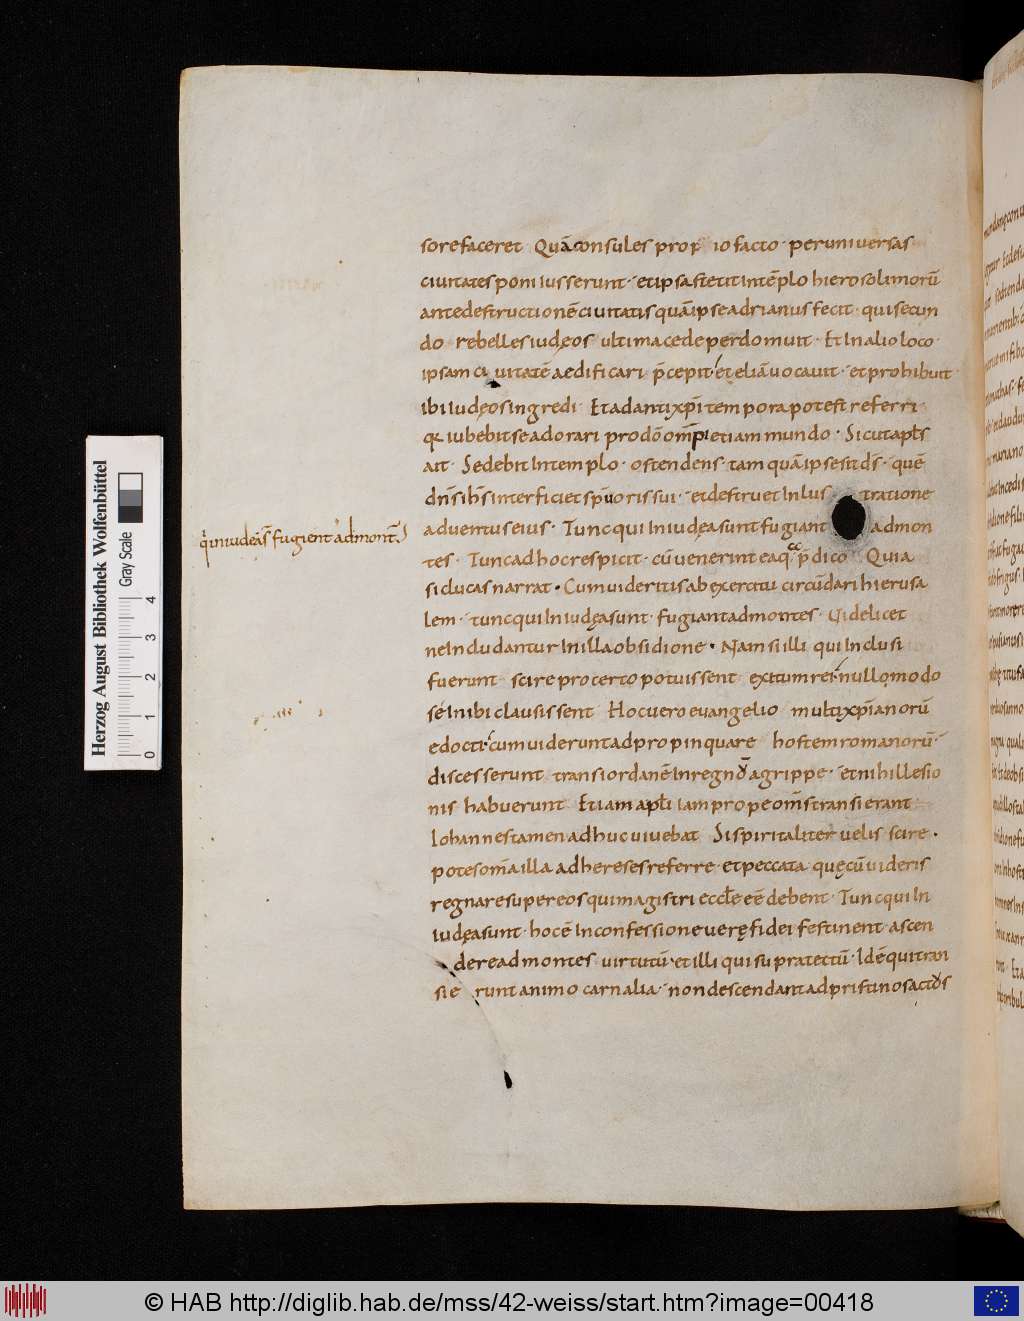 sorefaceret Quā consules prop̄ io facto · peruniuersas
ciuitates poni iusserunt · & ipsa stetit intēplo hierosolimorū
ante destructionē ciuitatis quā ipse adrianus fecit · qui secun
do rebelles iudęos ultima cede perdomuit · Et in alio loco ·
ipsam ci uitatē aedificari p̄cepit · et eliā uocauit · et prohibuit
ibi iudęos ingredi · Et ad antixp̄i tempora potest referri ·
qui iubebit se adorari pro dō om̄pi etiam mundo · Sicut apl̄s
ait · Sedebit in templo · ostendens · tam quā ipse sit ds̄ · quē
dn̄s ih̄s interficiet sp̄u oris sui · et destruet inlus tratione
aduentus eius · Tunc qui in iudęa sunt fugiant ad mon
q̄ in iudeas̄ fugient ad mont̄
tes · Tunc ad hoc respicit · cū uenerint ea q̄ p̄dico Quia
sic lucas narrat · Cum uideritis ab exercitu circūdari hierusa
lem · tunc qui in iudęa sunt · fugiant ad montes · Videlicet
ne includantur in illa obsidione · Nam si illi qui inclusi
fuerunt scire pro certo potuissent exitum rei · nullo modo
se inibi clausissent Hoc uero euangelio multi xp̄ianorū
edocti · cum uiderunt adpropinquare hostem romanorū ·
discesserunt trans iordanē in regnū agrippe · et nihil lesio
nis habuerunt Etiam apl̄i iam prope om̄s transierant
Iohannes tamen adhuc uiuebat Si spiritaliter uelis scire ·
potes om̄a illa ad hereses referre · et peccata quę cū uideris
regnare super eos qui magistri eccl̄e eē debent · Tunc qui in
iudęa sunt · hoc ē in confessione uerę fidei festinent ascen
dere ad montes uirtutū · et illi qui supra tectū · Id ē qui tran
sie runt animo carnalia · non descendant ad pristinos actus
Herzog August Bibliothek Wolfenbüttel
Gray Scale
0 1 2 3 4
© HAB http://diglib.hab.de/mss/42-weiss/start.htm?image=00418